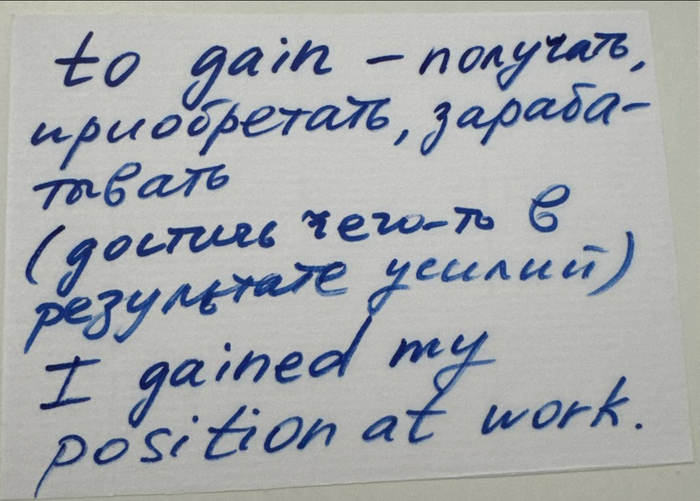 to gain – получать,
приобретать, зараба-
тывать
(достичь чего-то в
результате усилий)
I gained my
position at work.